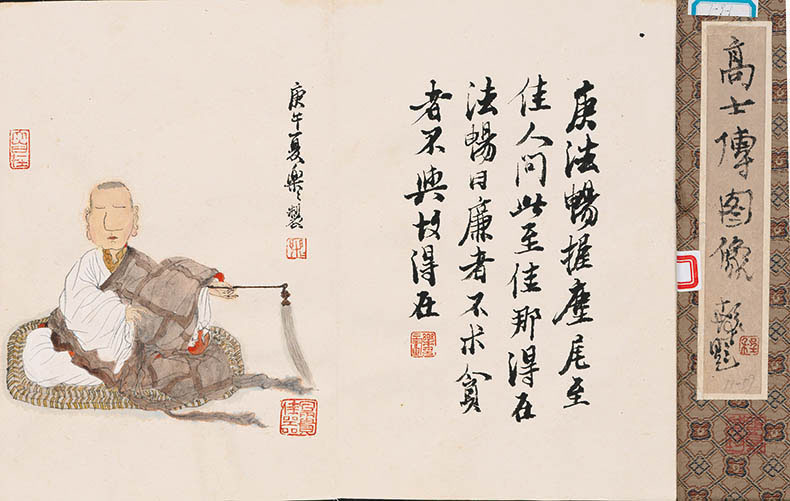 高士傳图像
題
庾法暢握麈尾至
佳人問此至佳那得在
法暢曰廉者不求貪
者不與故得在
庚午夏樂製